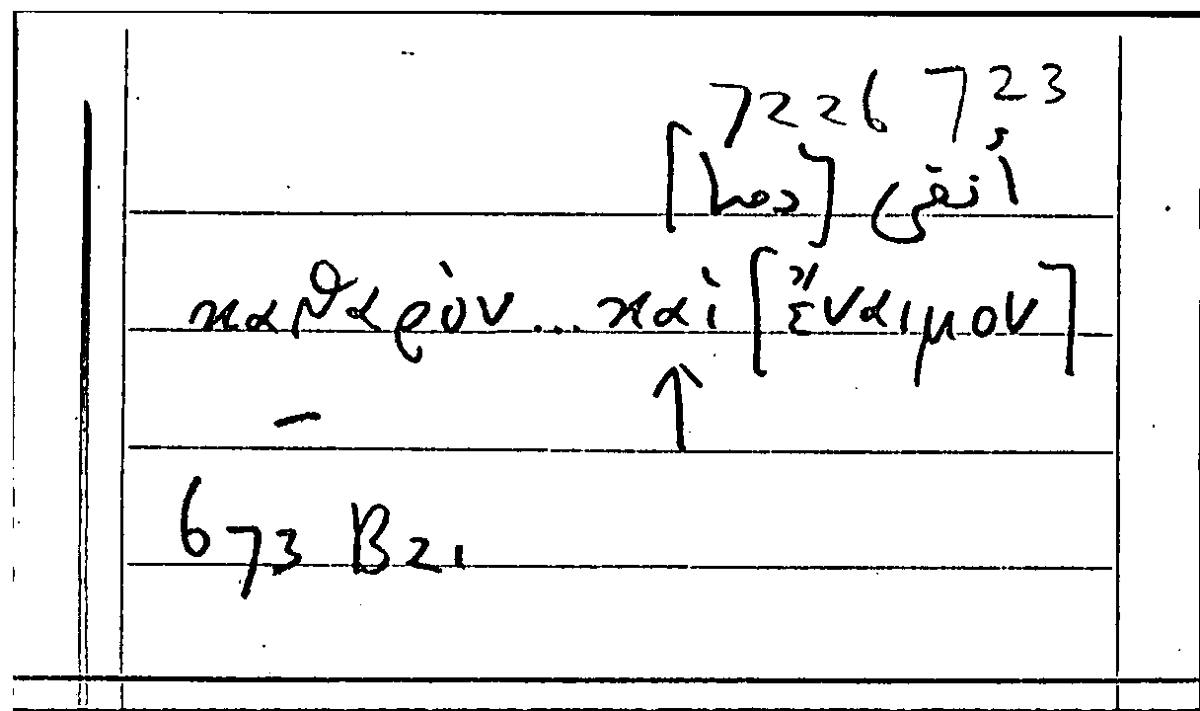 7226 723
أنقى [دما]
καθαρὸν... καὶ [ἔναιμον]
↑
673 B21